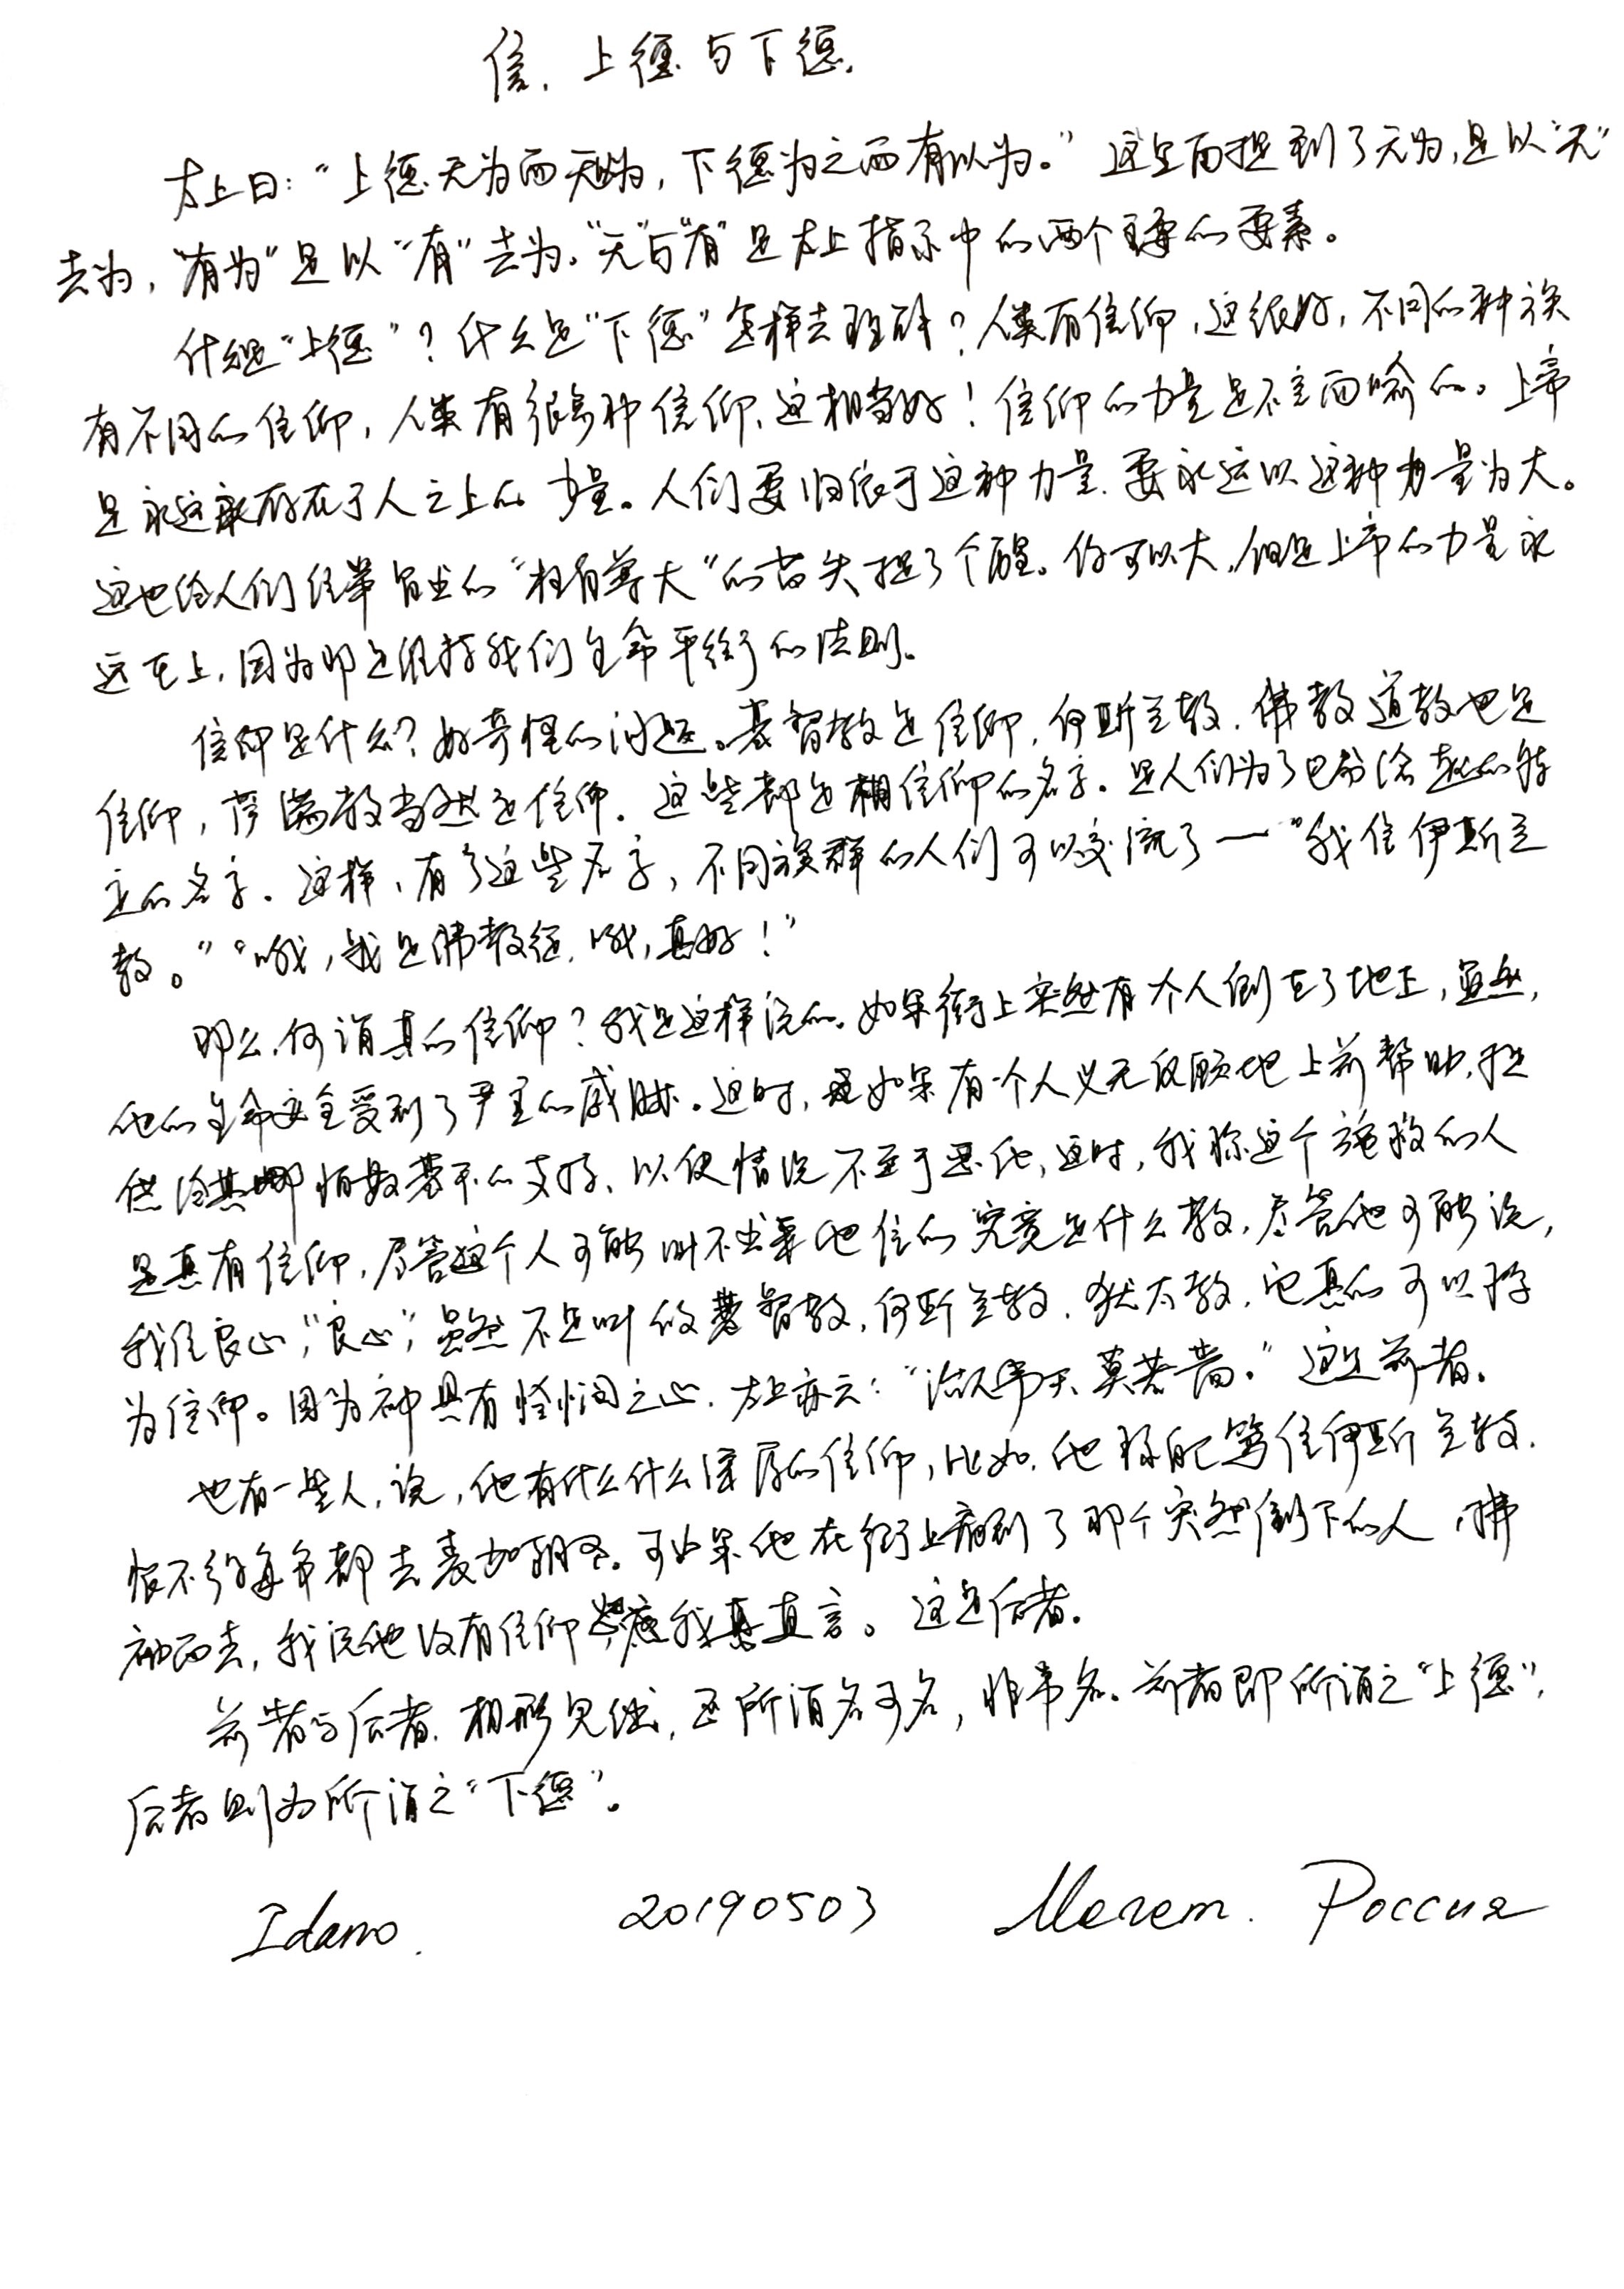 信、上德与下德.
太上曰：“上德无为而无以为，下德为之而有以为。”这里面提到了无为，是以“无”
去为，“有为”是以“有”去为。“无”与“有”是太上指示中的两个重要的要素。
什么是“上德”？什么是“下德”怎样去理解？人类有信仰，这很好，不同的种族
有不同的信仰，人类有很多种信仰，这相当好！信仰的力量是不言而喻的。上帝
是永远存在于人之上的力量。人们要归依于这种力量，要永远以这种力量为大。
这也给人们经常冒出的“枉自尊大”的苗头提了个醒。你可以大，但是上帝的力量永
远在上，因为那是维持我们生命平衡的法则。
信仰是什么？好奇怪的问题。基督教是信仰，伊斯兰教、佛教道教也是
信仰，萨满教当然是信仰．这些都是信仰的名字．是人们为了区分给起的特
定的名字．这样，有了这些名字，不同族群的人们可以交流了一“我信伊斯兰
教。”“哦，我是佛教徒，哦，真好！”
那么，何谓真的信仰？我是这样说的。如果街上突然有个人倒在了地上，显然，
他的生命安全受到了严重的威胁．这时，如果有一个人义无反顾地上前帮助，提
供给其哪怕最基本的支持、以使情况不至于恶化，这时，我称这个施救的人
是真有信仰，尽管这个人可能叫不出来他信的究竟是什么教，尽管他可能说，
我信良心，“良心”，虽然不是叫做基督教，伊斯兰教、犹太教，它真的可以称
为信仰。因为神具有怜悯之心．太上亦云：“治人事天莫若啬。”这是前者。
也有一些人，说，他有什么什么深厚的信仰，比如，他称自己笃信伊斯兰教．
恨不得每年都去麦加朝圣。可如果他在街上看到了那个突然倒下的人，拂
袖而去，我说他没有信仰，恕我直言。这是后者．
前者与后者．相形见绌，正所谓名可名，非常名．前者即所谓之“上德”，
后者则为所谓之“下德”。
Idamo. 20190503 Мегет. Россия